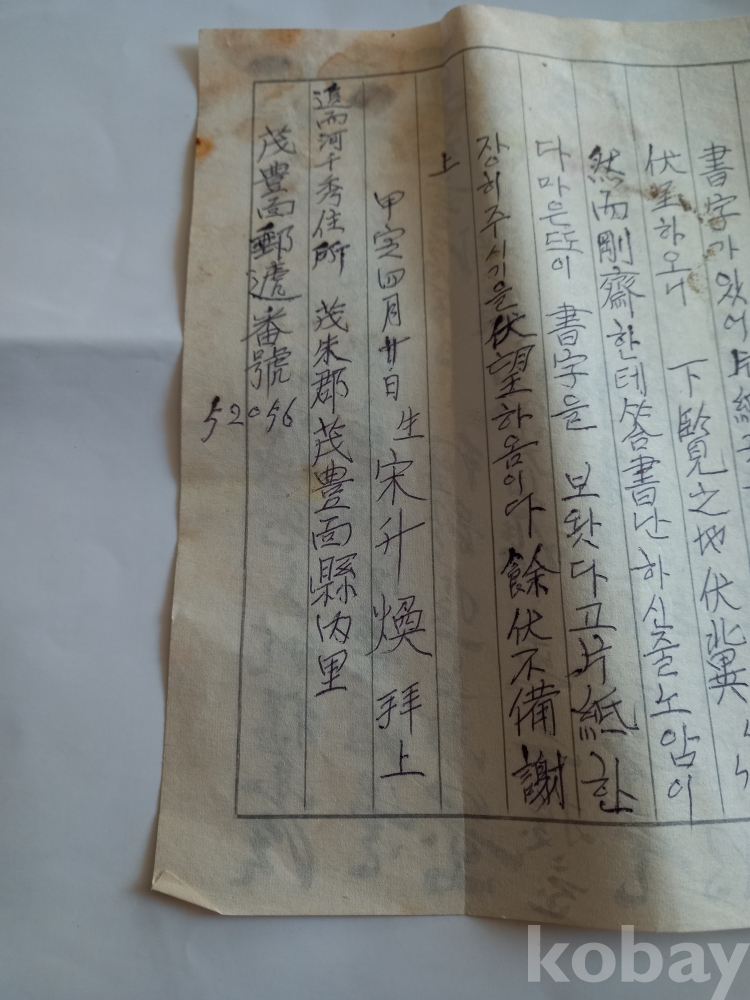 書字가 있어 片紙
伏呈하오니 下覧之地伏兆異
然而剛齋한테 答書난 하신줄노 암이
다마은 이 書字을 보왓다고 片紙 한
장히 주시기을 伏望하옴이다 餘伏不備謝
上
甲寅四月廿日 生 宋升煥 拜上
追而河千秀住所 茂朱郡茂豊面縣內里
茂豊面郵遞番號
52056
kobay